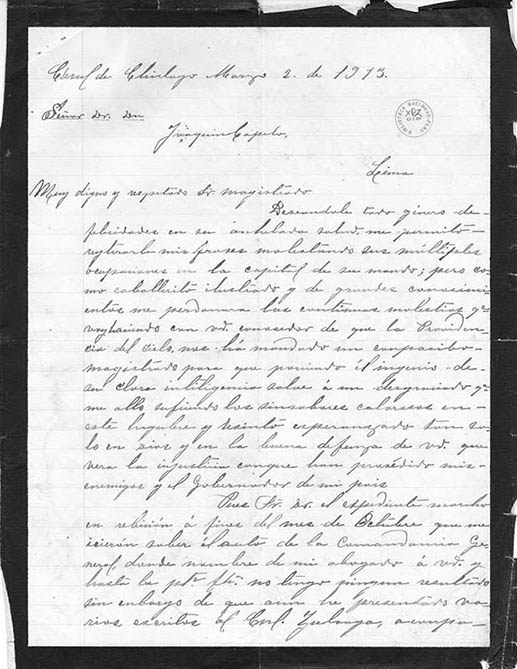 Carcel de Chiclayo Marzo 2. de 1913.
Señor Dr. Dn
Joaquin Capelo,
BIBLIOTECA NACIONAL
Lima
Muy digno y respetado Sr. magistrado
Deseandole todo género de-
felicidades en su anhelada salud, me permito-
reyterarle mis frases molestando sus múltiples
ocupaciones en la capital de su mando; pero co
mo caballerito ilustrado y de grandes conosimi
entos me perdonara las continuas molestias q.
voy haciendo con vd. conosedor de que la Providen
cia del cielo, nos há mandado un compasibo-
magistrado para que poniendo él ingenio de-
su clara intiligencia salve á un desgraciado q.
me allo sufriendo los sinsabores calorosos en-
este lugubre y resinto esperanzado tan so
lo en Dios y en la buena defenza de vd. que
vera la injusticia conque han prosédido mis-
enemigos y el Gobernador de mi pais
Pues Sr. Dr. el espediente marcho
en rebición á fines del mes de Octubre que me
icieron saber él auto de la Comandancia Ge
neral, donde nombre de mi abogado á vd. y
hasta la pte. fha. no tengo ningun resultado
sin embargo de que aun he presentado va
rios escritos al Crnl. Zuloaga, acompa-